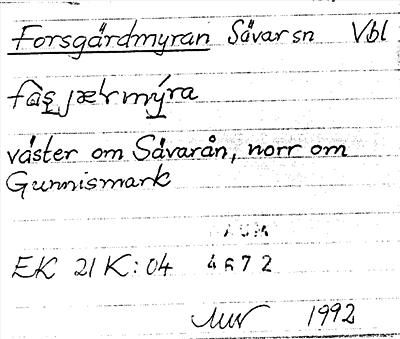 Forsgärdmyran Sävar sn Vbl
väster om Sävarån, norr om
Gunnismark
DAUM
EK 21 K:04 4672
1992